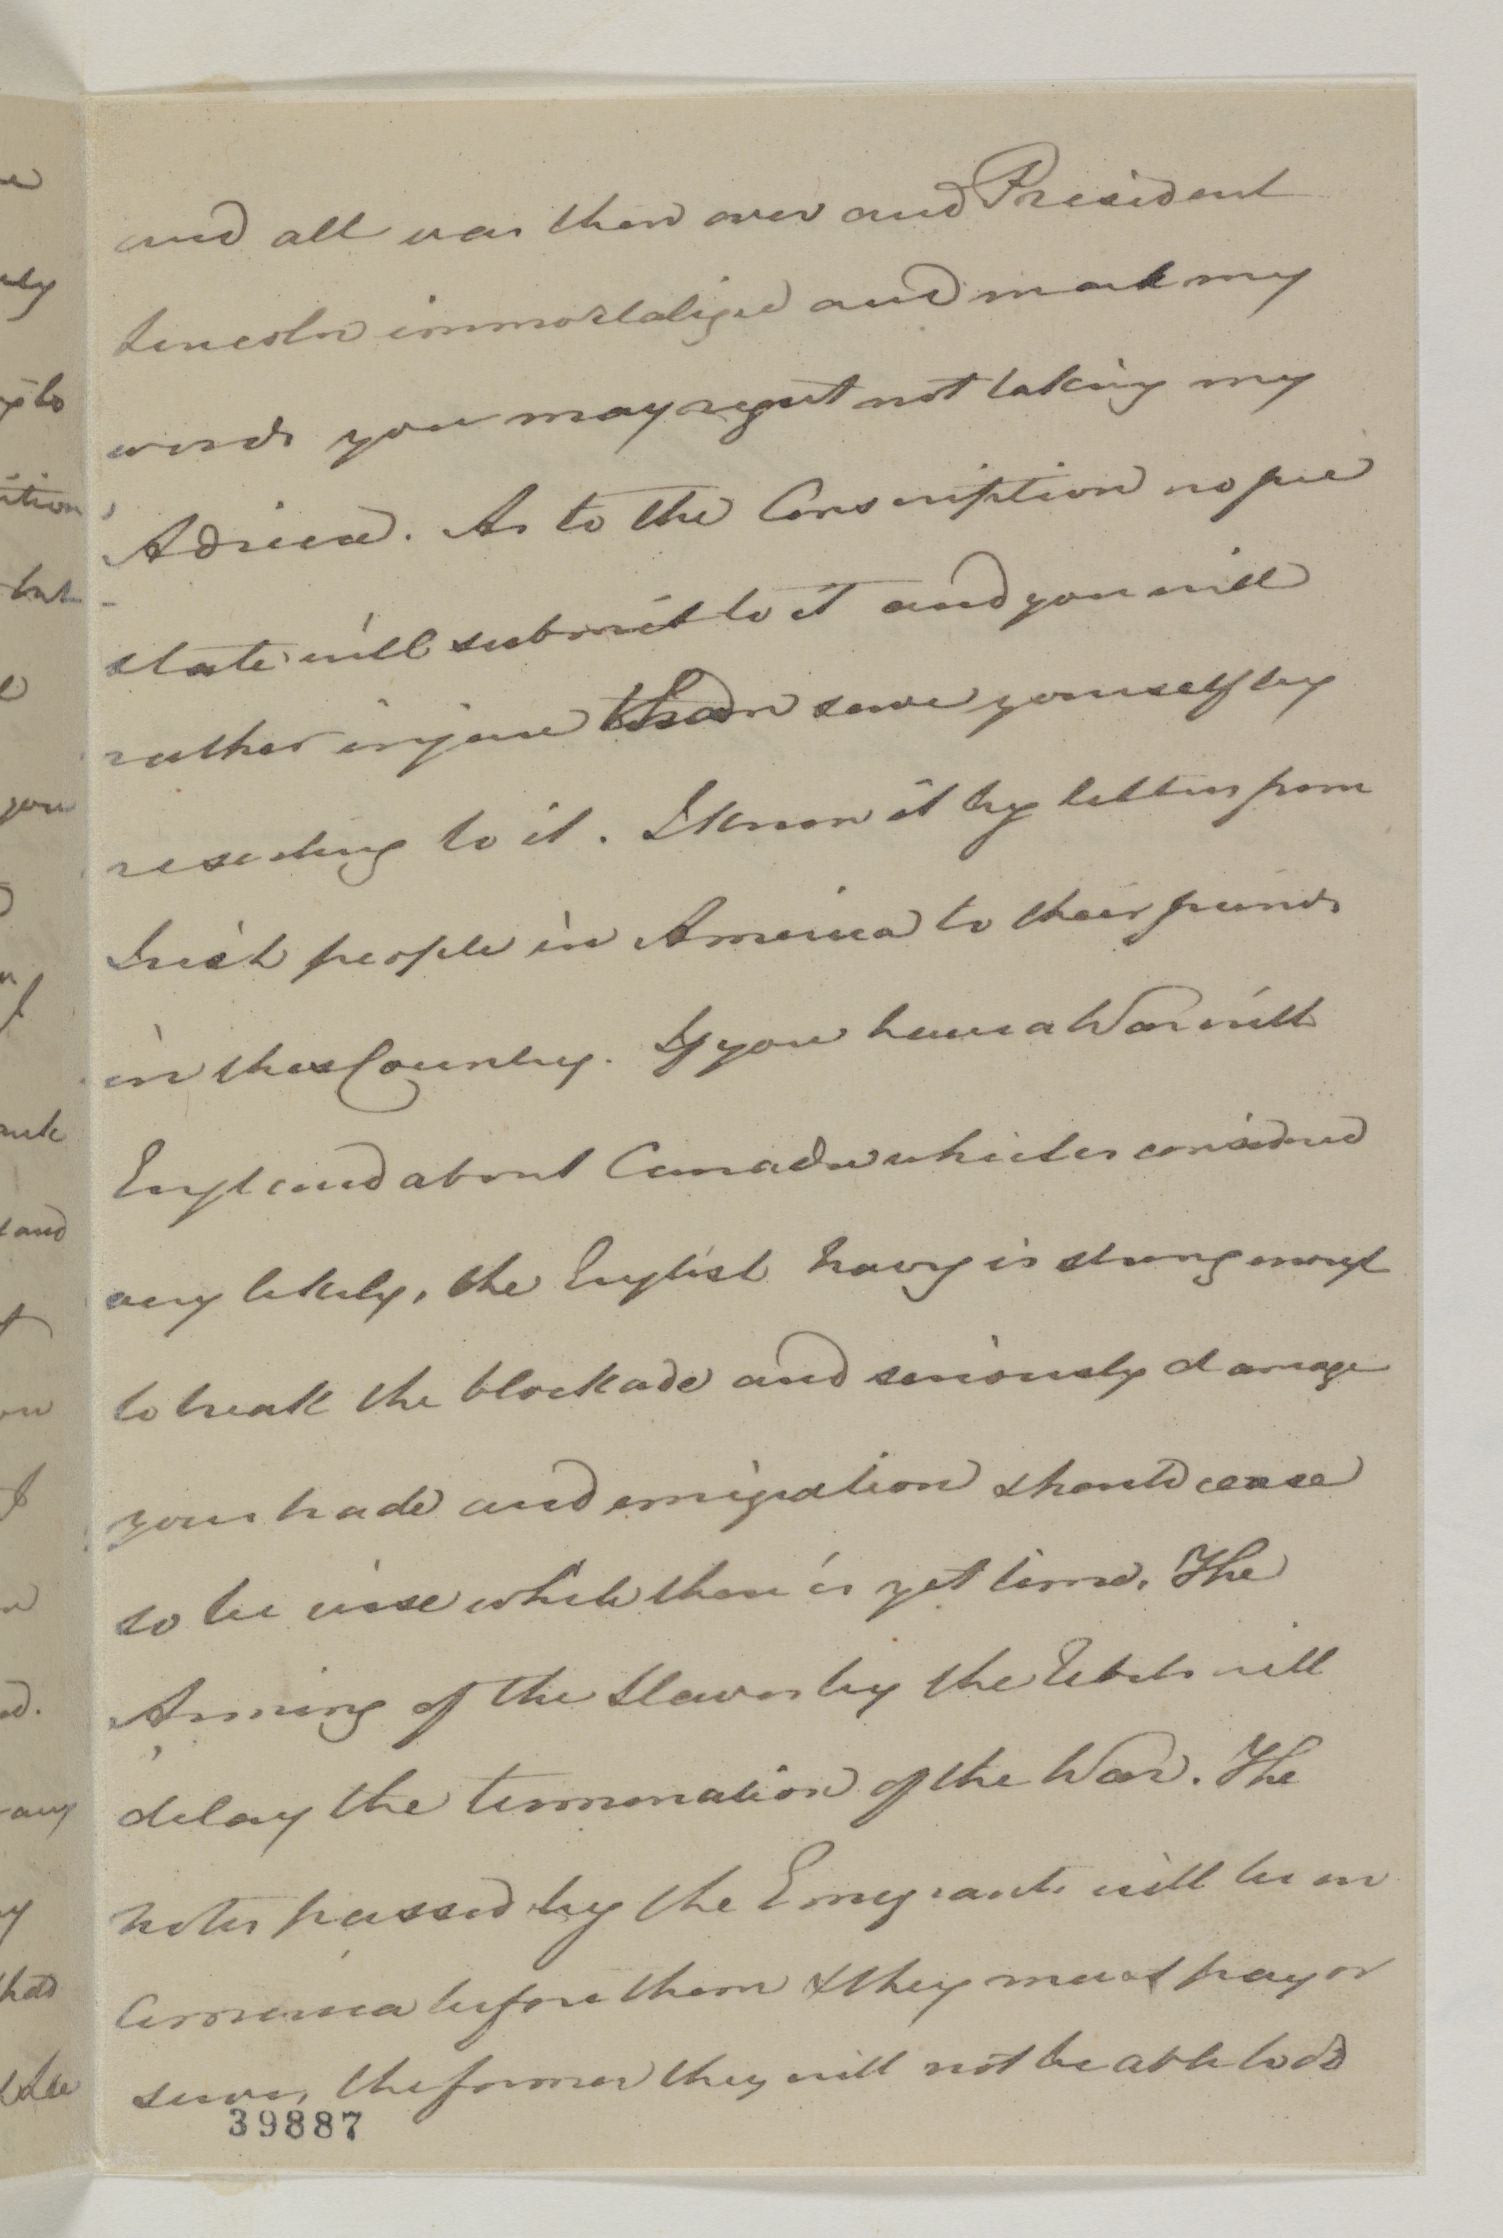 and all was then over and President
Lincoln immortalized and mark my
words you may regret not taking my
Advice. As to the Conscription no free
state will submit to it and you will
rather injure than serve yourself by
resorting to it. I know it by letters from
Irish people in America to their friends
in this Country. If you have a War with
England about Canada which is considered
very likely, the English Navy is strong enough
to break the blockade and seriously damage
your trade and emigration should cease
so be wise while there is yet time. The
Arming of the Slaves by the Rebels will
delay the termination of the War. The
notes passed by the Emigrants will be in
America before them & they must pay or
serve, the former they will not be able to do
39887